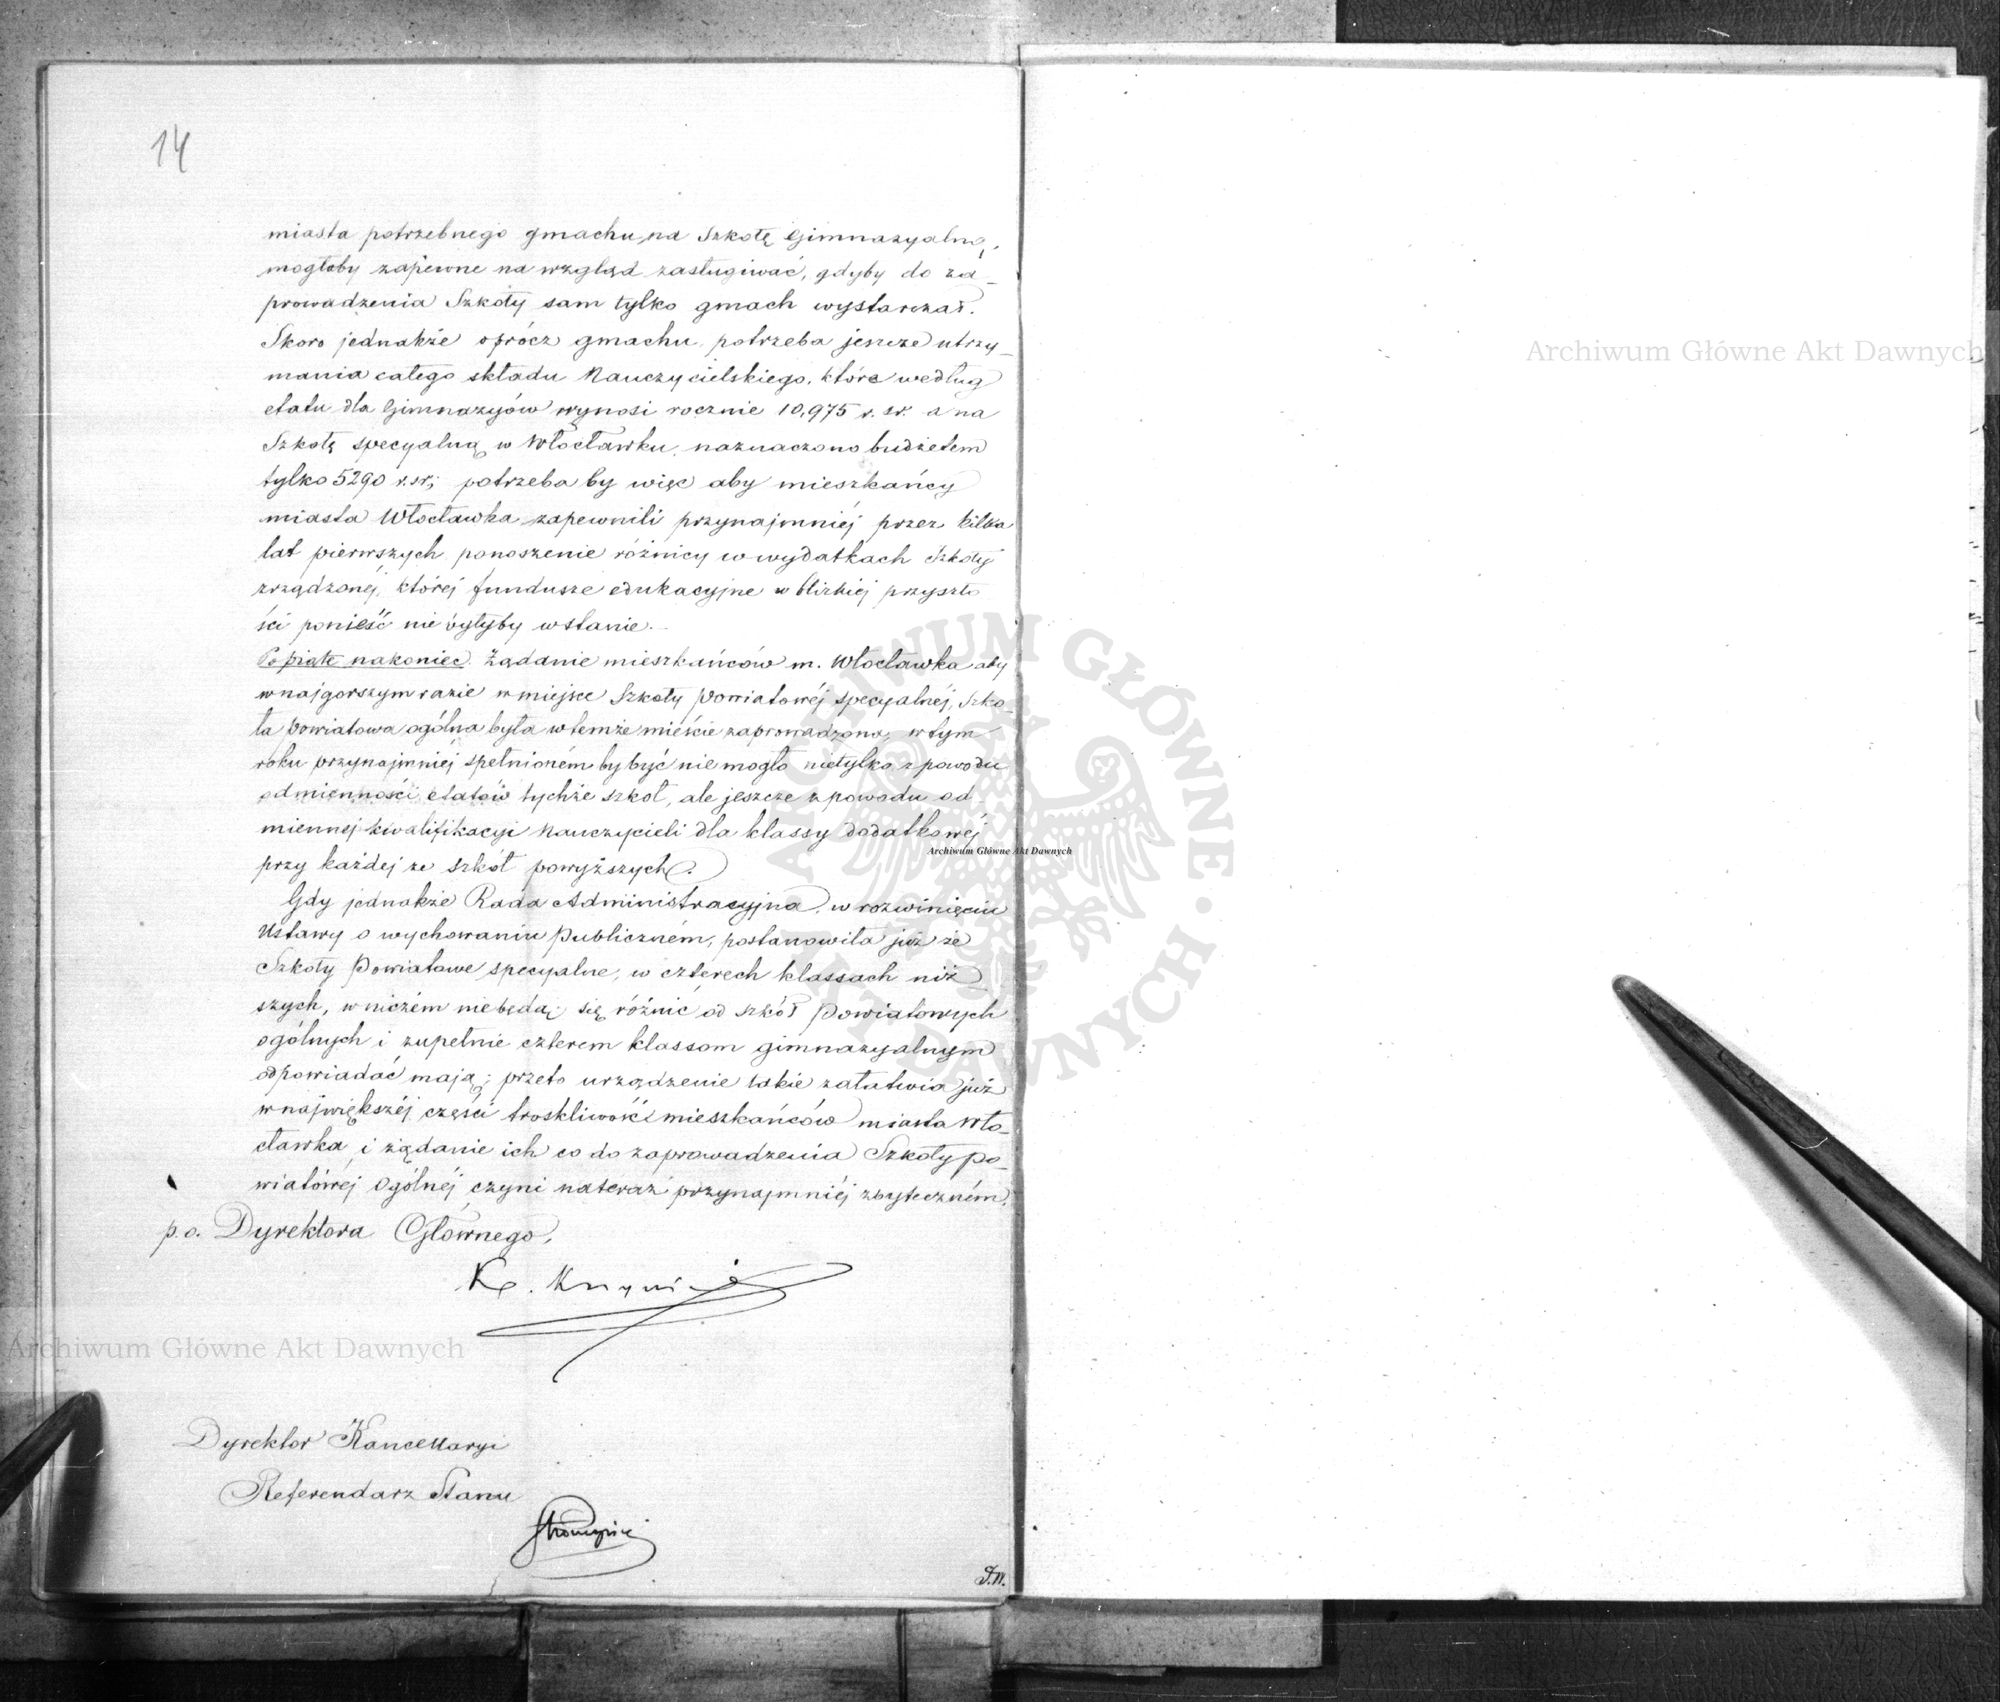 14
miasta potrzebnego gmachu, na Szkołę Gimnazyalną,
mogłoby zapewne na wzgląd zasługiwać, gdyby do za_
prowadzenia Szkoły sam tylko gmach wystarczał.
Skoro jednakże oprócz gmachu, potrzeba jeszcze utrzy_
mania całego składu Nauczycielskiego, które według
etatu dla Gimnazyów wynosi rocznie 10,975 r. sr. a na
Szkołę specyalną w Włocławku, naznaczono budżetem
tylko 5290 r. sr; potrzeba by więc aby mieszkańcy
miasta Włocławka zapewnili przynajmniéj przez kilka
lat pierwszych ponoszenie różnicy w wydatkach Szkoły
rządzonej, któréj fundusze edukacyjne w blizkiéj przyszło
ści ponieść nie byłyby wstanie.
Po piąte nakoniec. Żądanie mieszkańców m. Włocławka aby
w najgorszym razie w miejsce Szkoły Powiatowéj specyalnéj, Szko_
ła Powiatowa ogólna była w temże mieście zaprowadzona, w tym
roku przynajmniéj spełnioném by być nie mogło nietylko z powodu
odmienności etatów tychże szkół, ale jeszcze z powodu od_
miennej kwalifikacyi Nauczycieli dla klassy dodatkowéj
przy każdej ze szkół powyższych.
Gdy jednakże Rada Administracyjna, w rozwinięciu
Ustawy o wychowaniu Publiczném, postanowiła już że
Szkoły Powiatowe specyalne, w czterech klassach niż_
szych, w niczém nie będą się różnić od szkół Powiatowych
ogólnych i zupełnie czterem klassom gimnazyalnym
odpowiadać mają; przeto urządzenie takie załatwia już
w największéj części troskliwość mieszkańców miasta Wło_
cławka, i żądanie ich co do zaprowadzenia Szkoły po_
wiatowéj Ogólnéj czyni nateraz przynajmniéj zbyteczném.
p.o. Dyrektora Głównego,
K.
Dyrektor Kancellaryi
Referendarz Stanu
Archiwum Główne Akt Dawnych
Archiwum Główne Akt Dawnych
Archiwum Główne Akt Dawnych
ARCHIWUM GŁÓWNE AKT DAWNYCH